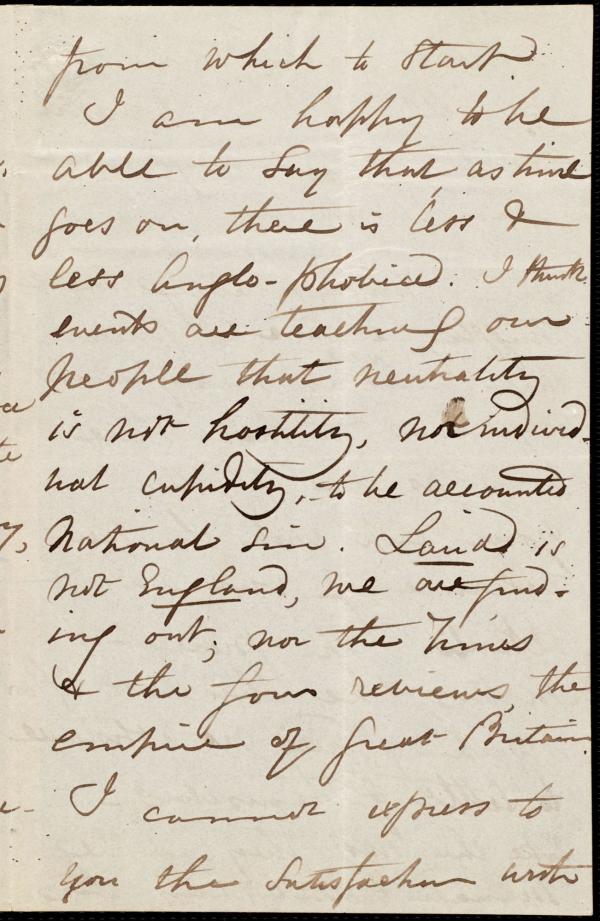 from which to start
I am happy to be
able to say that, as time
goes on, there is less &
less Anglo-phobia. I think
events are teaching our
people that neutrality
is not hostility, nor individ-
ual cupidity, to be accounted
National sin. Laird is
not England, we are find-
ing out; nor the Times
& the four reviews, the
empire of Great Britain.
I cannot express to
you the satisfaction with